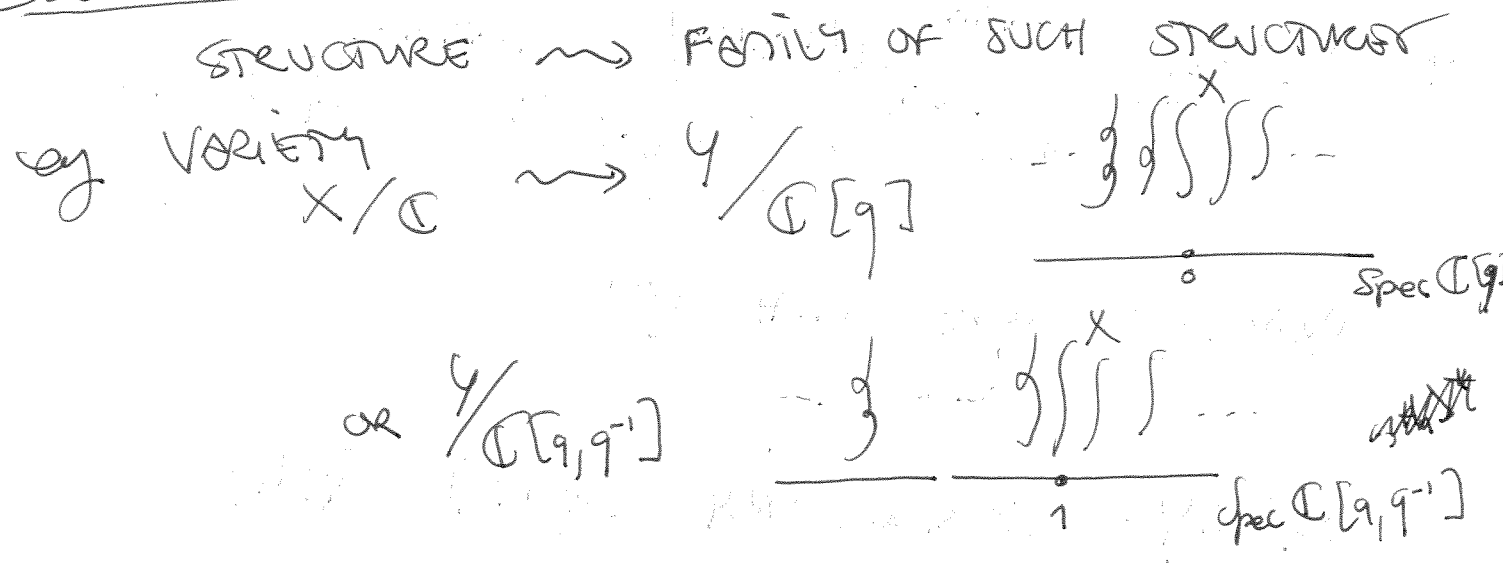 STRUCTURE ⇝ FAMILY OF SUCH STRUCTURES
eg VARIETY X/ℂ ⇝ Y/ℂ[q] ... X ...
0 Spec ℂ[q]
OR Y/ℂ[q, q⁻¹] ... ... X ...
1 Spec ℂ[q, q⁻¹]